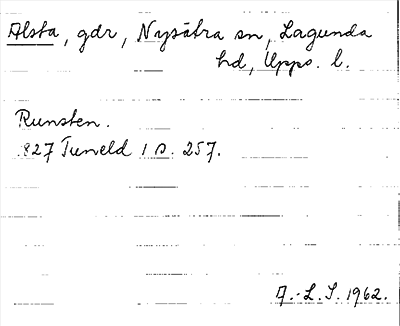 Alsta, gdr, Nysätra sn, Lagunda
hd, Upps. l.
Runsten.
1827 Tuneld 1 s. 257.
A.-L. S. 1962.